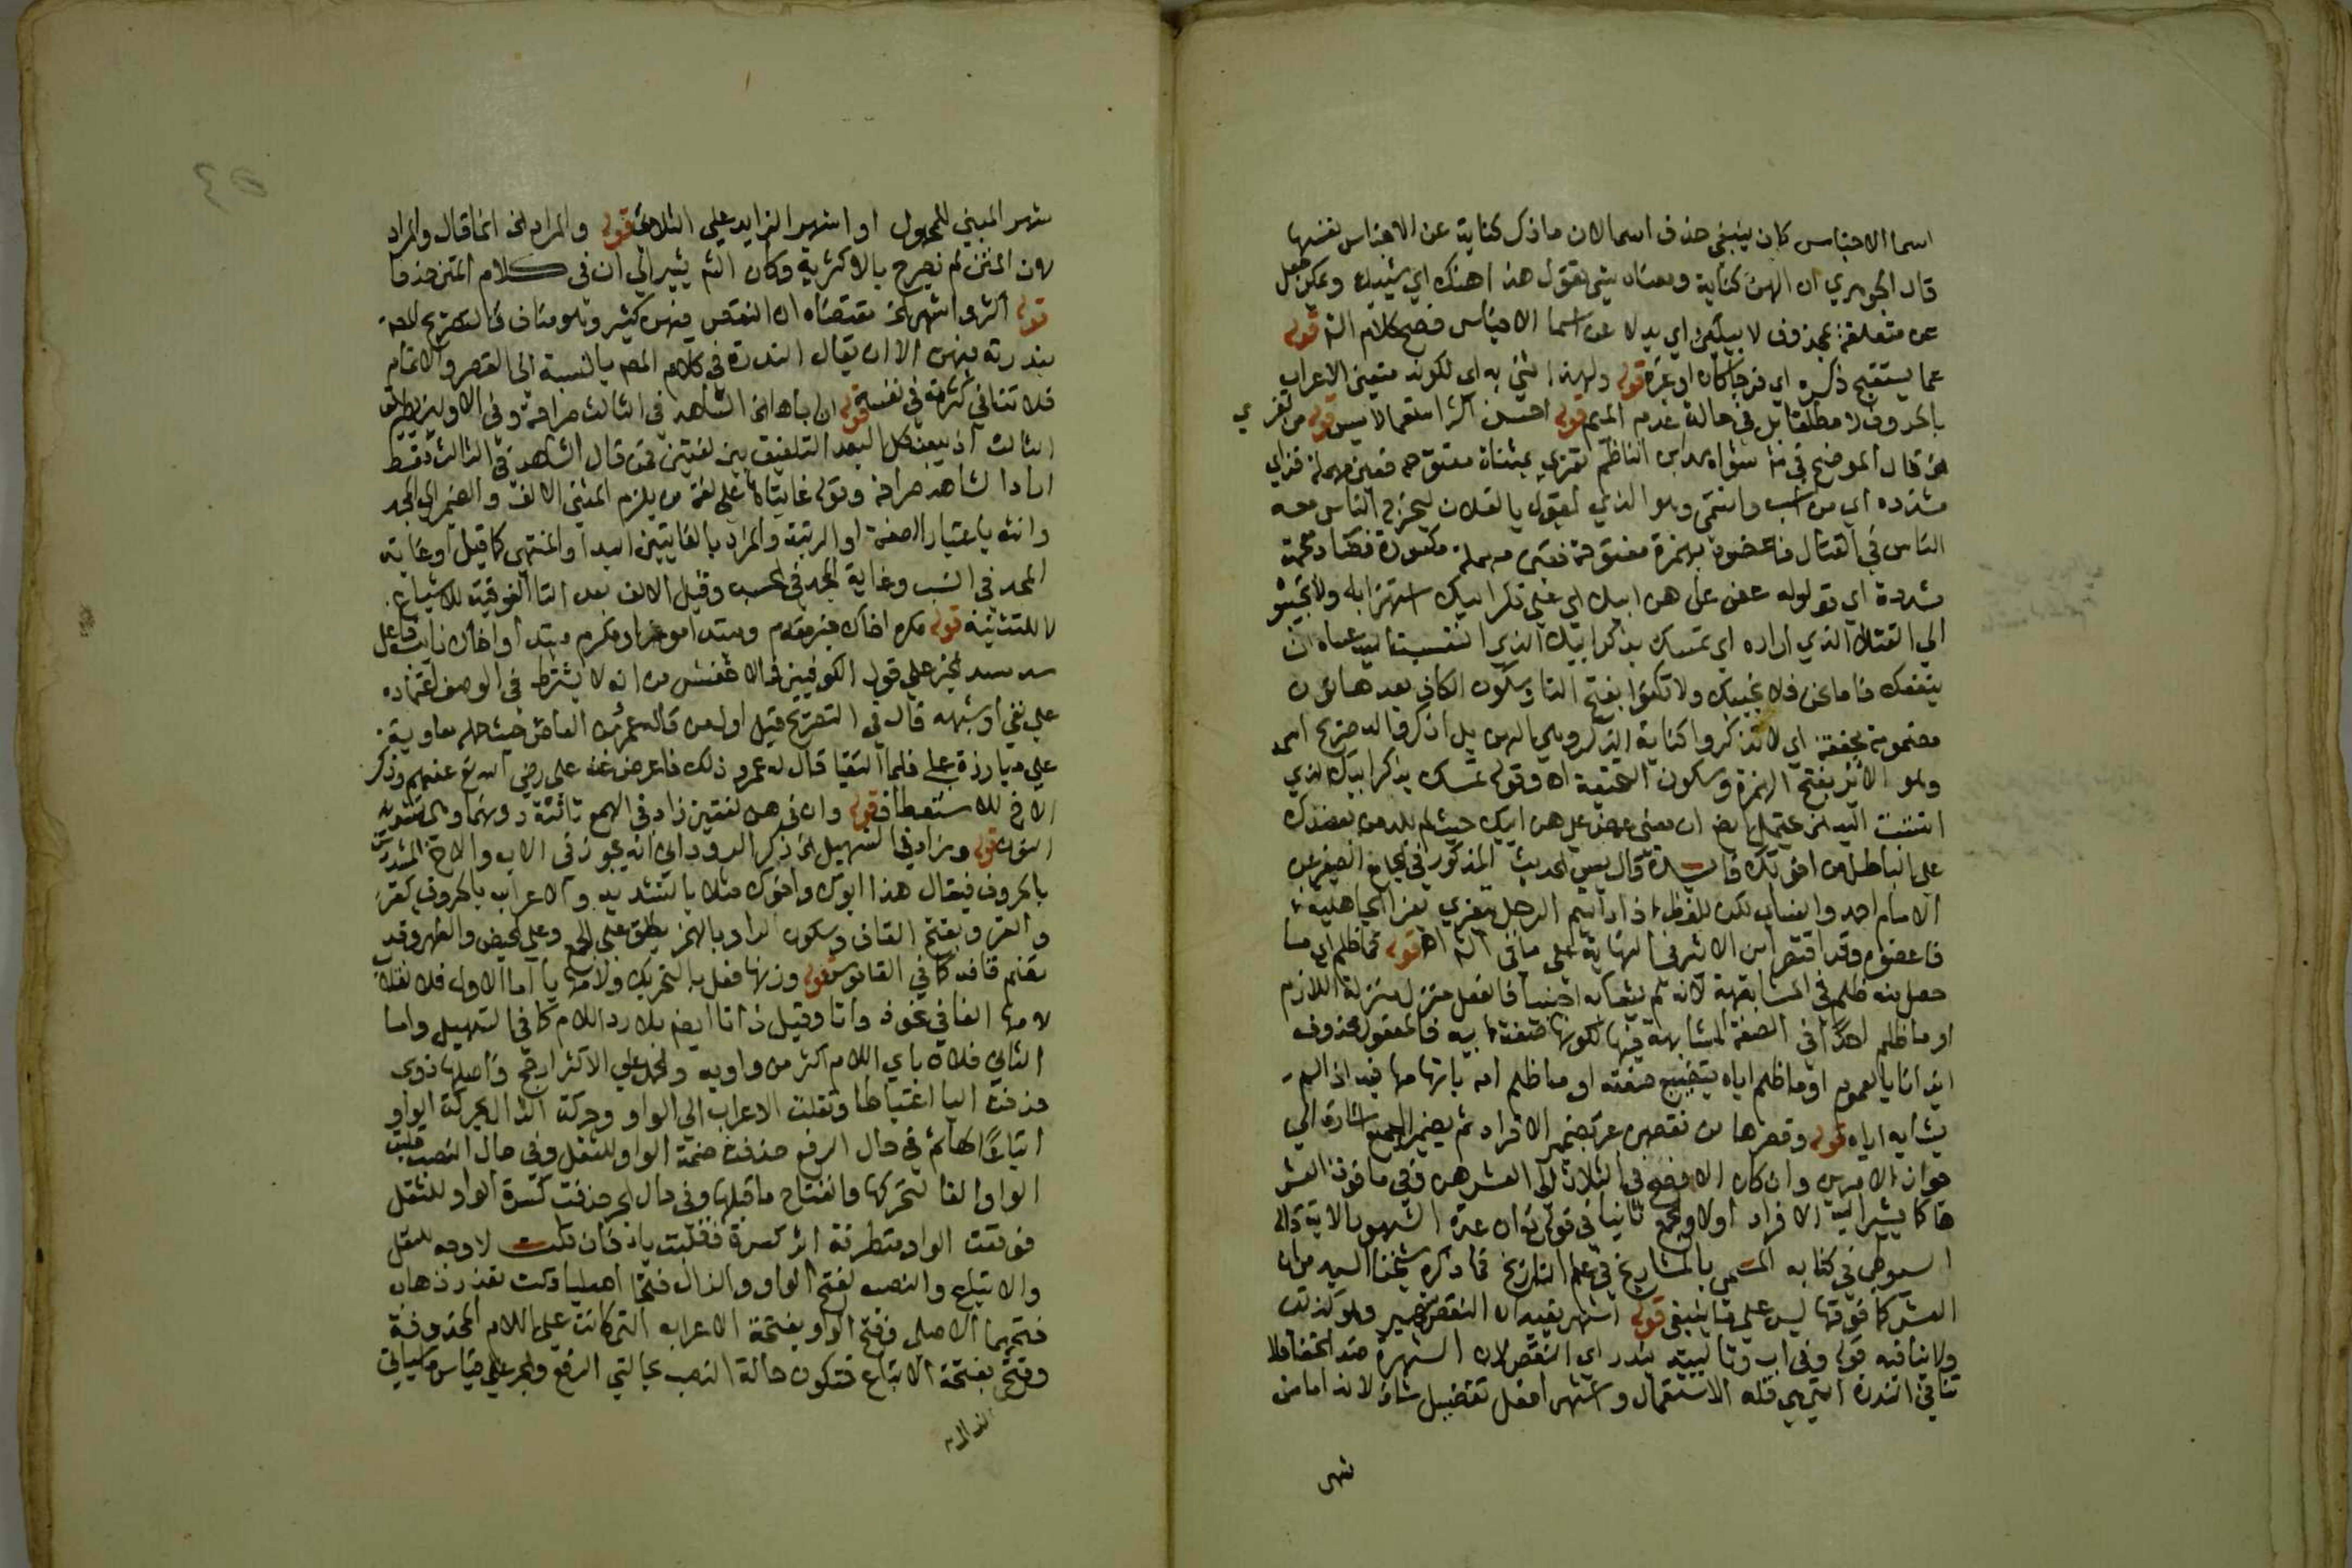 اسما الاجناس كان ينبغي حذف اسما لان ما ذكر كناية عن الاجناس نفسها
قال الجوهري ان الهن كناية ومعناه شي تقول هذا هنك اي شيئك ويمكن جعل
عن متعلقة بمحذوف لا بيكنى اي بدلا عن اسما الاجناس فصح كلام الش قوله
عما يستقبح ذكره اي فرجا كان او غيره قوله ولهذا اثني به اي لكونه متعين الاعراب
بالحروف لا مطلقا بل في حالة عدم الميم قوله احسن اكثر استعمالا يس قوله من تعزي
الخ قال الموضح في شواهد ابن الناظم تعزى بمثناة مفتوحة فعين مهملة فزاي
مشددة اي من انتسب وانتمى وهو الذي يقول يا لفلان ليخرج الناس معه
الناس في القتال فاعضوه بهمزة مفتوحة فعين مهملة مكسورة فضاد معجمة
مشددة اي قولوا له عض على هن ابيك اي على ذكر ابيك استهزا به ولا تجيبوه
الى القتال الذي اراده اي تمسك بذكر ابيك الذي انتسبت اليه عساه ان
ينفعك فاما نحن فلا نجيبك ولا تكنوا بفتح التا وسكون الكاف بعدها نون
مضمومة مخففة اي لا تذكروا كناية الذكر وهي الهن بل اذكروا له صريح اسمه
وهو الاير بفتح الهمزة وسكون التحتية اه وقوله تمسك بذكر ابيك الذي
انتسبت اليه الخ يحتمل ايض ان معنى عض على هن ابيك حيث لم يلد من يعضدك
على الباطل من اخوتك فائدة قال يس الحديث المذكور في الجامع الصغير عن
الامام احمد والنسائي لكن بلفظ اذا رايتم الرجل يتعزى بعزا الجاهلية
فاعضوه وقد اقتصر ابن الاثير في النهاية على ما في الش اه قوله فما ظلم اي ما
حصل منه ظلم في المشابهة لانه لم يشابه اجنبيا فالفعل منزل منزلة اللازم
او ما ظلم احدا في الصفة المشابهة فيها لكونها صفة ابيه فالمفعول محذوف
ايذانا بالعموم او ما ظلم اياه بتضييع صفته او ما ظلم امه باتهامها فيه اذا لم
يشابه اباه قوله وقصرها من نقصهن عبر بضمير الافراد ثم بضمير الجمع اشارة الى
جواز الامرين وان كان الافصح في الثلاث الى العشر هن وفي ما فوق العشر
ها كما يشير اليه الافراد اولا والجمع ثانيا في قوله تع ان عدة الشهور الاية قاله
السيوطي في كتابه المسمى بالشماريخ في علم التاريخ فما ذكره شيخنا السيد من ان
العشر كما فوقها ليس على ما ينبغي قوله اشهر يفيد ان النقص شهير وهو كذلك
ولا ينافيه قوله وفي اب وتالييه يندر اي النقص لان الشهرة ضد الخفا فلا
تنافي الندرة التي هي قلة الاستعمال واشهر افعل تفضيل شاذ لانه اما من
شهر
شهر المبني للمجهول او اشهر الزايد على الثلاثة قوله والمراد الخ انما قال والمراد
لان المتن لم يصرح بالاكثرية وكان الش يشير الى ان في كلام المتن حذفا
قوله اكثر واشهر الخ مقتضاه ان النقص فيهن كثير وهو مناف فالتصريح المص
بندرته فيهن الا ان يقال الندرة في كلام المص بالنسبة الى القصر والاتمام
فلا تنافي كثرته في نفسه قوله ان اباها الخ الشاهد في الثالث صراحة وفي الاولين بطريق
الثالث اذ يبعد كل البعد التلفيق بين لغتين فمن قال الشاهد في الثالث فقط
اراد الشاهد صراحة وقوله غايتاها على لغة من يلزم المثنى الالف والضمير الى المجد
وانثه باعتبار الصفة او الرتبة والمراد بالغايتين المبدأ والمنتهى كما قيل او غاية
المجد في النسب وغاية المجد في الحسب وقيل الالف بعد التا الفوقية للاشباع
لا للتثنية قوله مكره اخاك خبر مقدم ومبتدا موخر او مكره مبتدا واخاك نايب فاعل
سد مسد الخبر على قول الكوفيين والاخفش من انه لا يشترط في الوصف اعتماده
على نفي او شبهه قال في التصريح قيل اول من قاله عمرو بن العاص حيث حمله معاوية
على مبارزة علي فلما التقيا قال له عمرو ذلك فاعرض عنه علي رضي الله تع عنهم وذكر
الاخ للاستعطاف قوله وان في هن لغتين زاد في الهمع ثالثة دونهما وهي تشديد
النون قوله وزاد في التسهيل الخ ذكر الروداني انه يجوز في الاب والاخ المشددين
بالحروف فيقال هذا ابوك واخوك مثلا بالتشديد والاعراب بالحروف كقرء
والقرء وبفتح القاف وسكون الراء وبالهمز يطلق على الجمع وعلى الحيض والطهر وقد
تضم قافه كما في القاموس قوله وزنها فعل بالتحريك ولامها يا اما الاول فلانقلاب
لامها الفا في نحو ذواتا وقيل ذاتا ايضا بلا رد اللام كما في التسهيل واما
الثاني فلان ياي اللام اكثر من واويه والحمل على الاكثر ارجح واصلها ذوى
حذفت اليا اعتباطا ونقلت الاعراب الى الواو وحركت الذال بحركة الواو
اتباعا لها ثم في حال الرفع حذفت ضمة الواو للثقل وفي حال النصب قلبت
الواو الفا لتحركها وانفتاح ما قبلها وفي حال الجر حذفت كسرة الواو للثقل
فوقعت الواو متطرفة اثر كسرة فقلبت يا فان قلت لا وجه للنقل
والاتباع والنصب لفتح الواو والذال فتحا اصليا قلت تقدر ذهاب
فتحهما الاصلي وفتح الواو بفتحة الاعراب التي كانت على اللام المحذوفة
وفتح بفتحة الاتباع فتكون حالة النصب كحالتي الرفع والجر على قياس ما سياتي